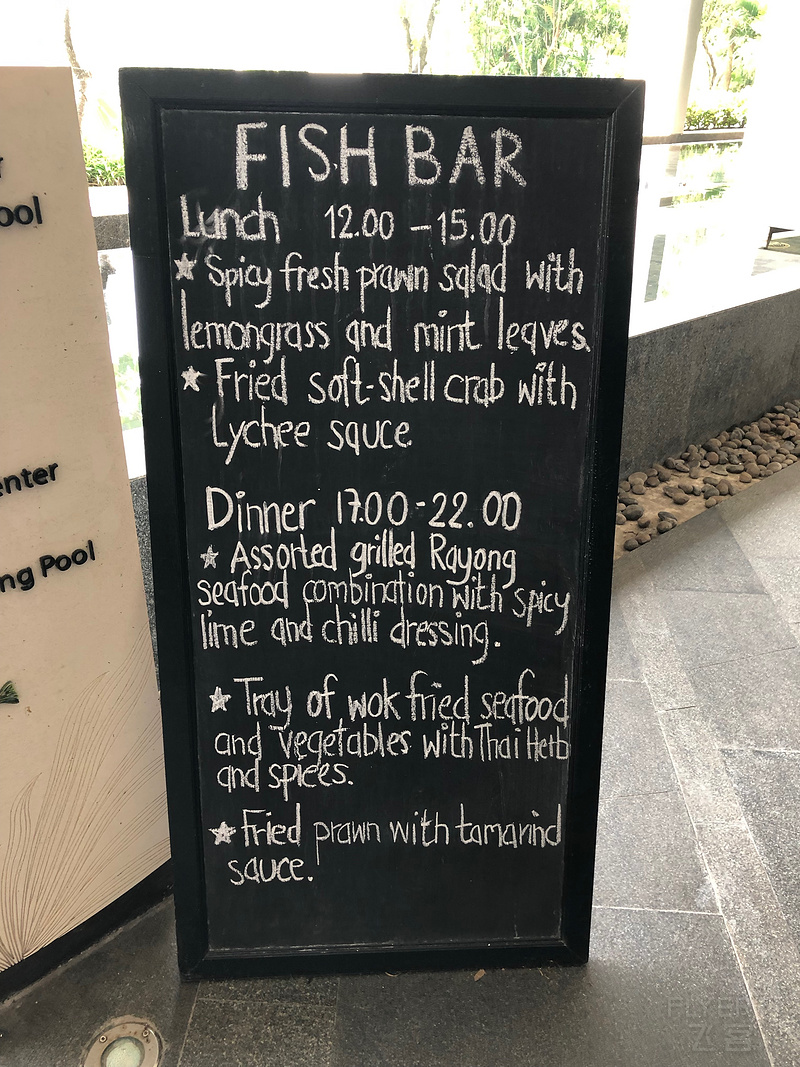 FISH BAR
Lunch 12.00 – 15.00
★ Spicy fresh prawn salad with
lemongrass and mint leaves.
★ Fried soft-shell crab with
Lychee sauce
Dinner 17.00-22.00
★ Assorted grilled Rayong
seafood combination with spicy
lime and chilli dressing.
★ Tray of wok fried seafood
and vegetables with Thai Herb
and spices.
★ Fried prawn with tamarind
sauce.
ool
enter
ng Pool
FLYER